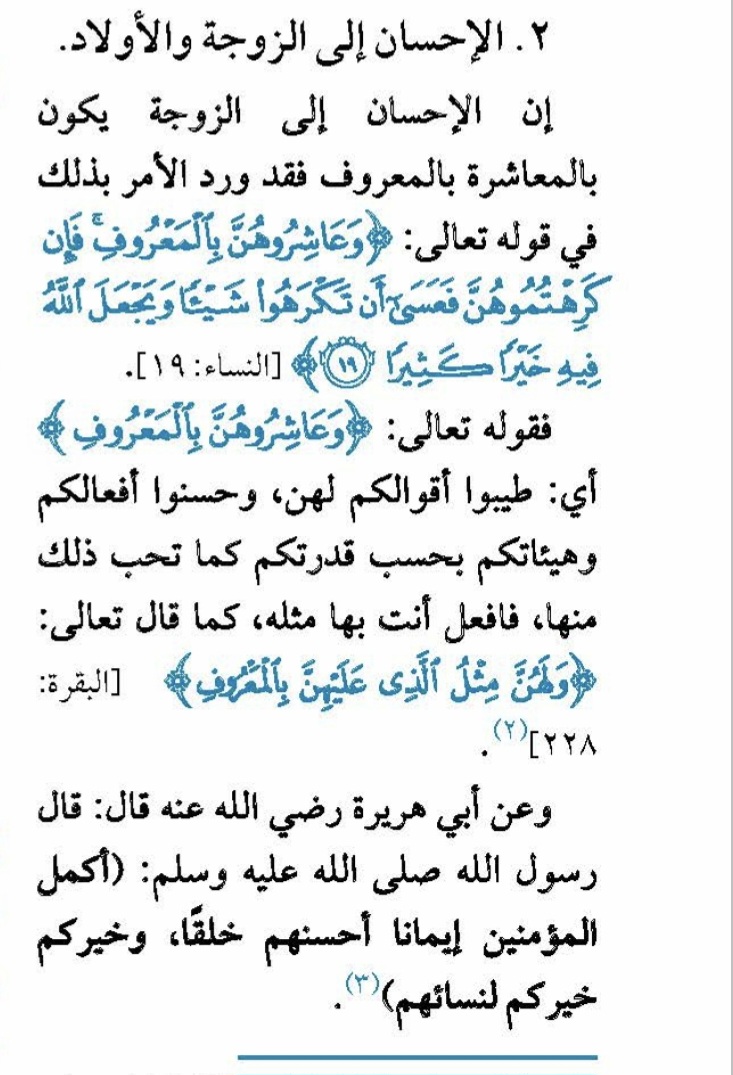 ٢. الإحسان إلى الزوجة والأولاد.
إن الإحسان إلى الزوجة يكون
بالمعاشرة بالمعروف فقد ورد الأمر بذلك
في قوله تعالى: ﴿وَعَاشِرُوهُنَّ بِٱلْمَعْرُوفِ ۚ فَإِن
كَرِهْتُمُوهُنَّ فَعَسَىٰٓ أَن تَكْرَهُوا۟ شَيْـًٔا وَيَجْعَلَ ٱللَّهُ
فِيهِ خَيْرًا كَثِيرًا ١٩﴾ [النساء: ١٩].
فقوله تعالى: ﴿وَعَاشِرُوهُنَّ بِٱلْمَعْرُوفِ﴾
أي: طيبوا أقوالكم لهن، وحسنوا أفعالكم
وهيئاتكم بحسب قدرتكم كما تحب ذلك
منها، فافعل أنت بها مثله، كما قال تعالى:
﴿وَلَهُنَّ مِثْلُ ٱلَّذِى عَلَيْهِنَّ بِٱلْمَعْرُوفِ﴾ [البقرة:
٢٢٨](٢).
وعن أبي هريرة رضي الله عنه قال: قال
رسول الله صلى الله عليه وسلم: (أكمل
المؤمنين إيمانا أحسنهم خلقًا، وخيركم
خيركم لنسائهم)(٣).